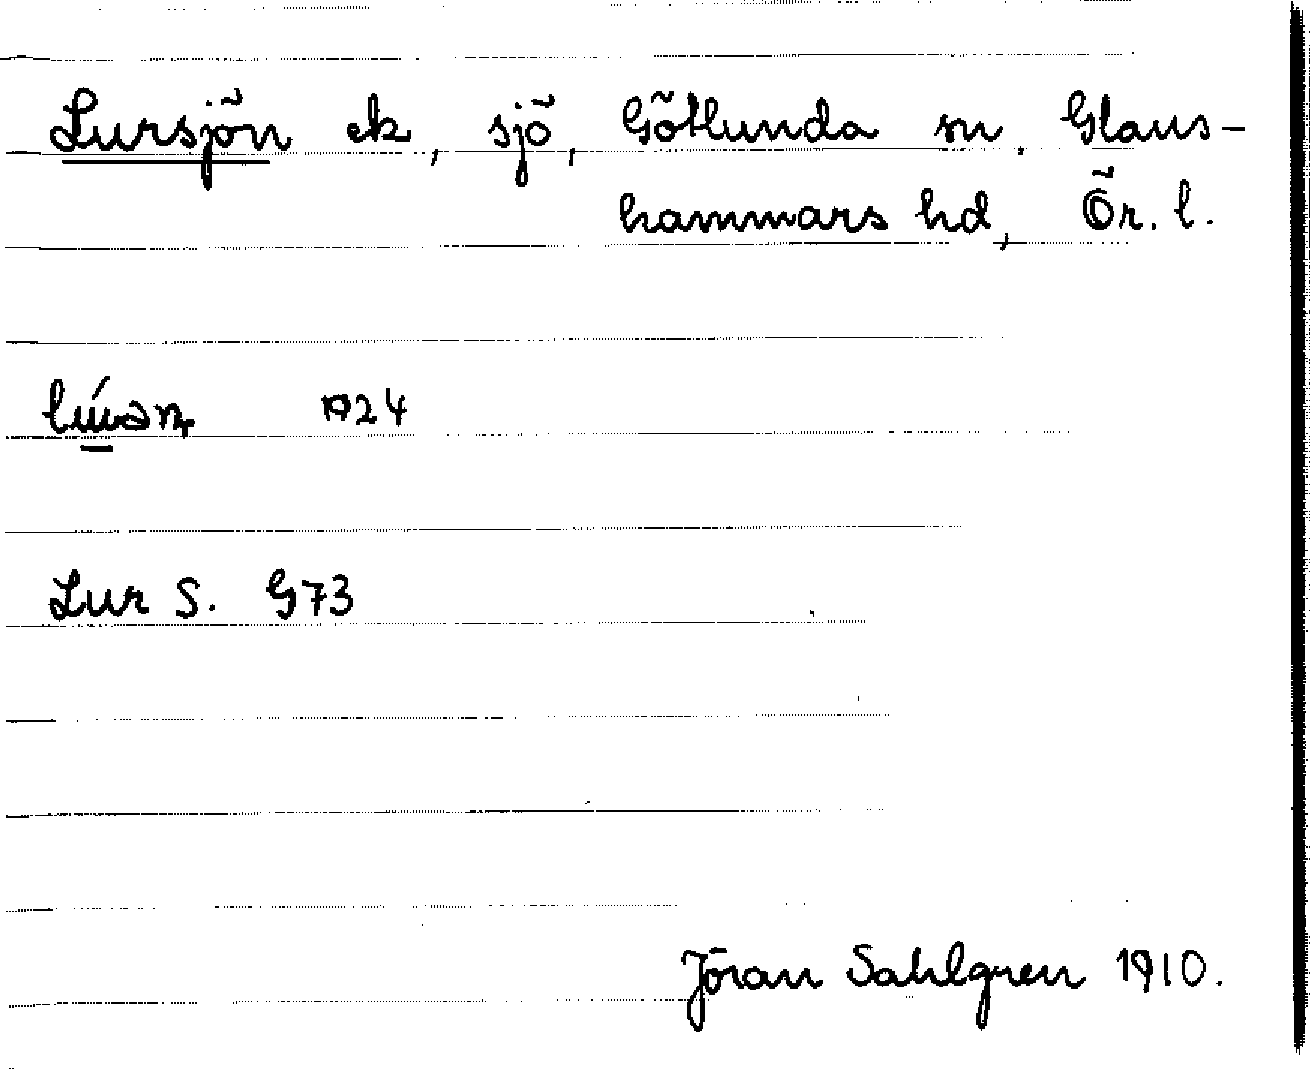 Lursjön ek, sjö, Götlunda sn. Glans-
hammars hd, Ör. l.
1924
Lur S. G73
Jöran Sahlgren 1910.